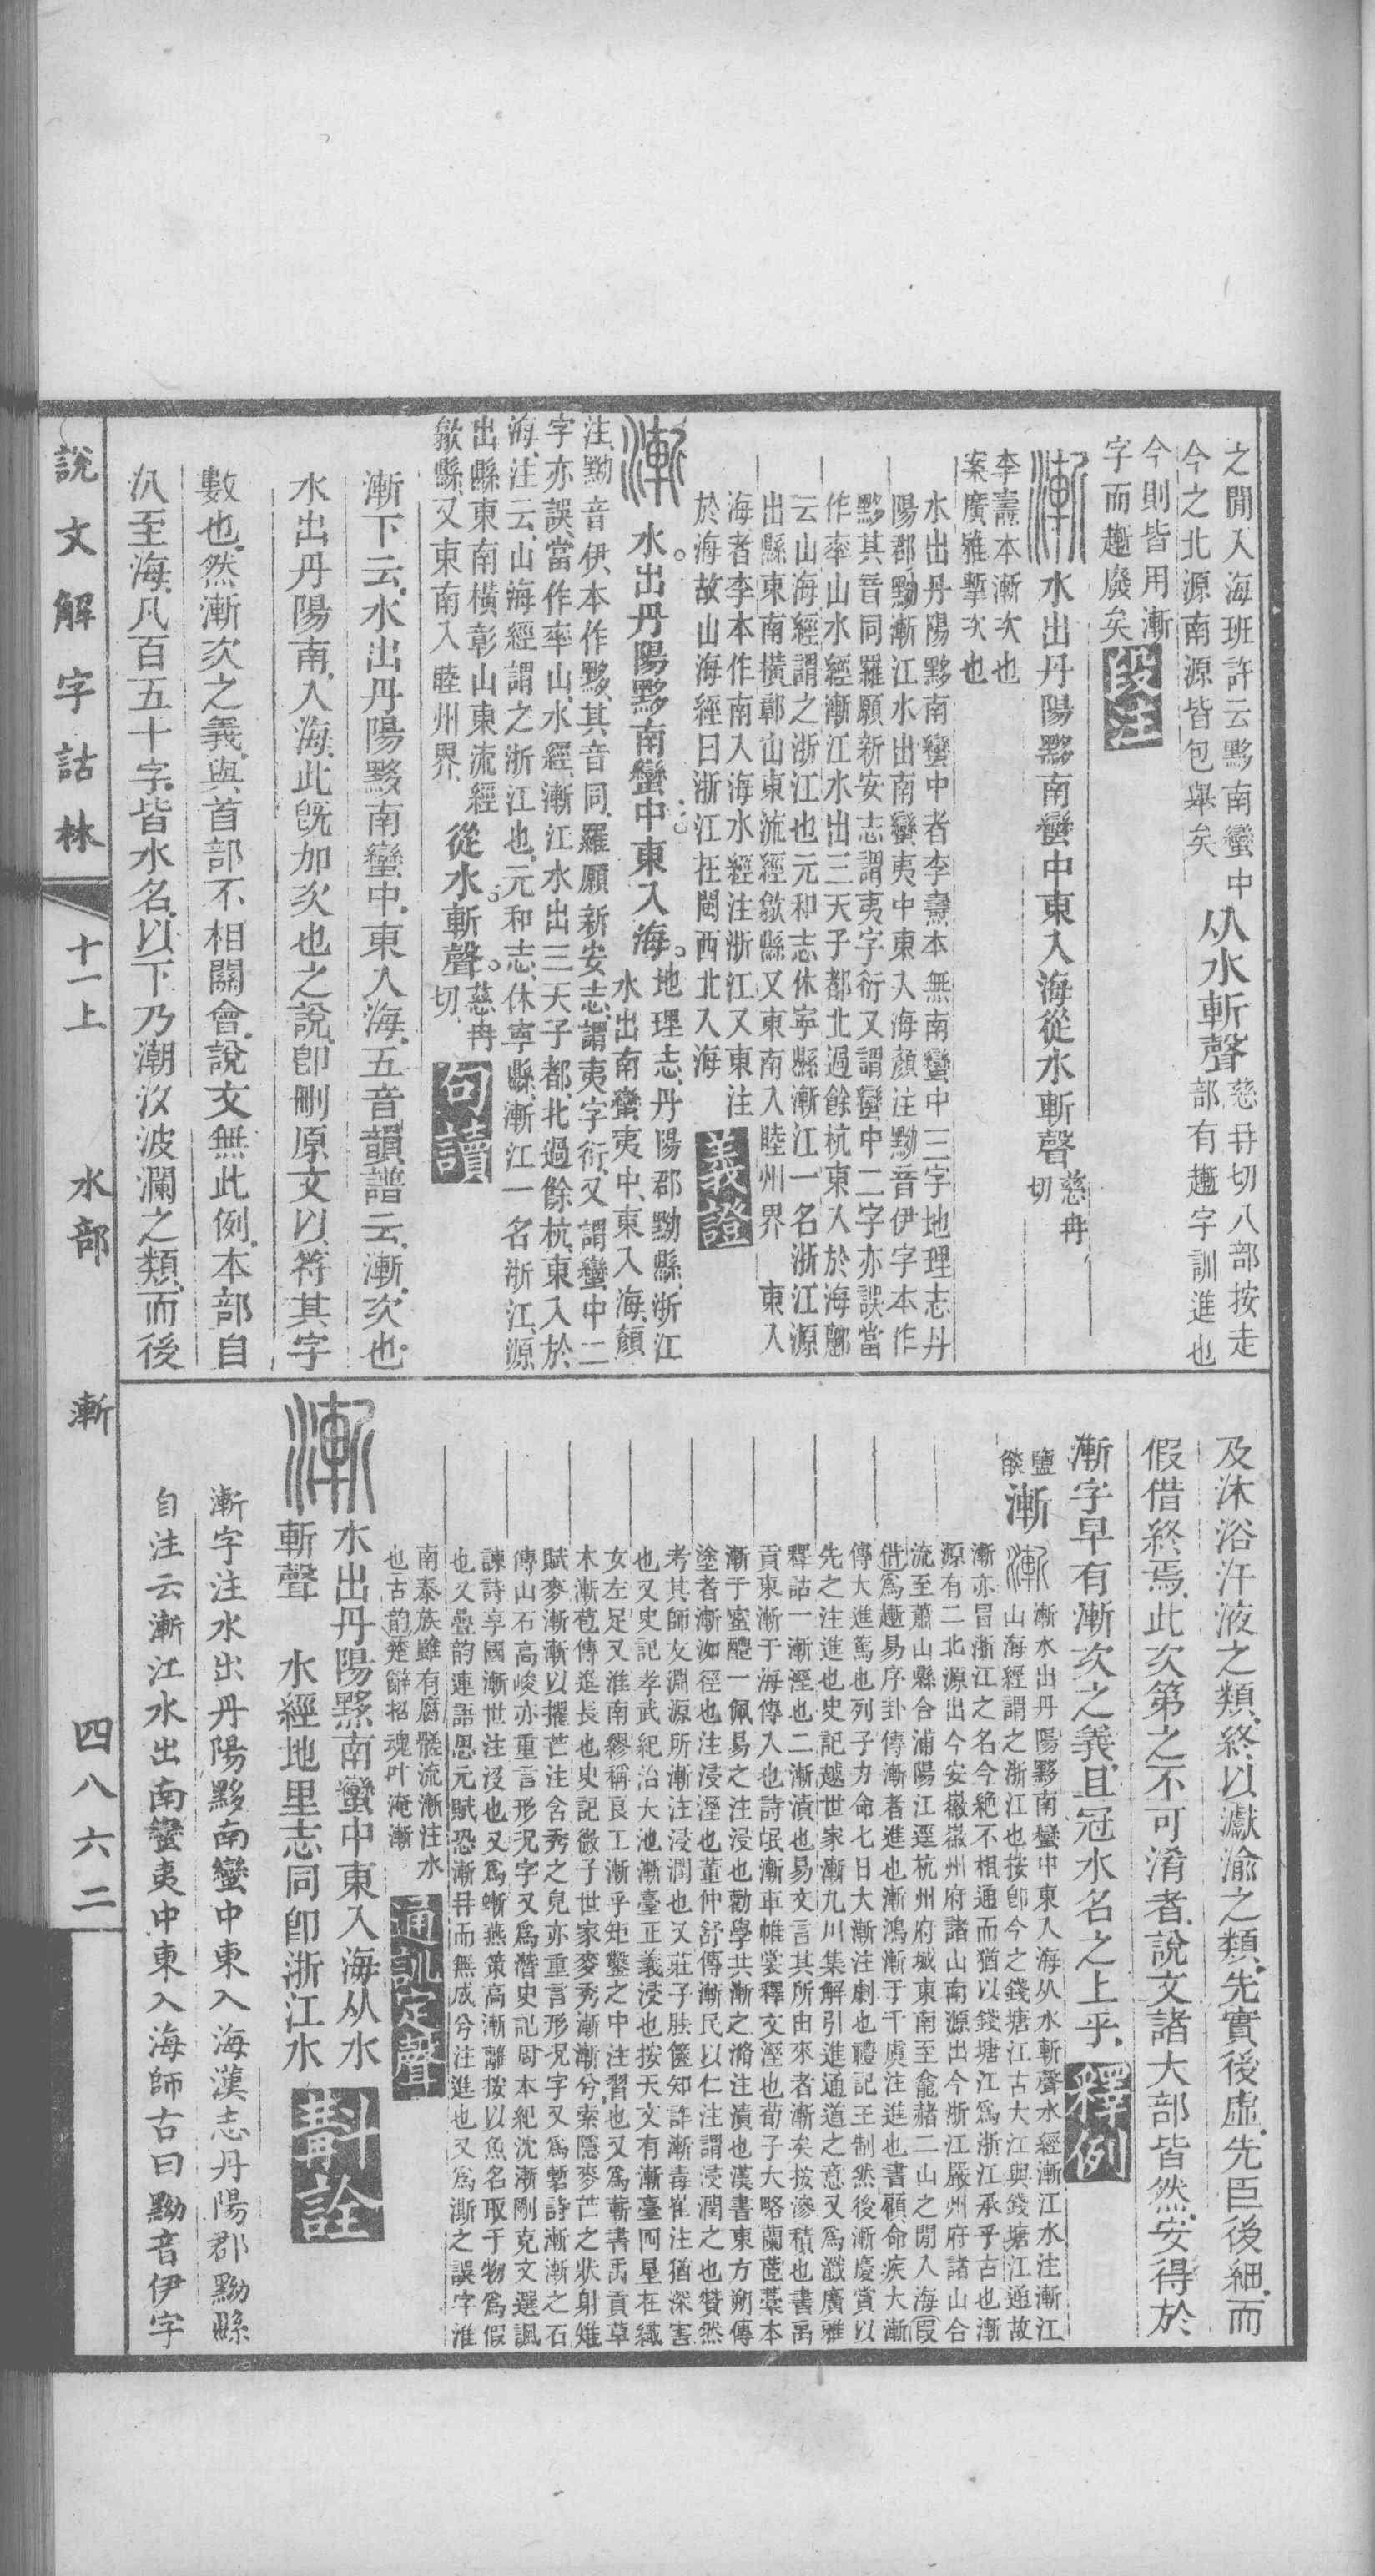 之閒入海班許云黟南蠻中
今之北源南源皆包舉矣
从水斬聲
慈冄切八部按走
部有䟅字訓進也
今則皆用漸
字而䟅廢矣
段注
漸
水出丹陽黟南蠻中東入海從水斬聲
慈冉
切
李燾本漸次也
案廣雅塹次也
水出丹陽黟南蠻中者李燾本無南蠻中三字地理志丹
陽郡黝漸江水出南蠻夷中東入海顏注黝音伊字本作
黟其音同羅願新安志謂夷字衍又謂蠻中二字亦誤當
作率山水經漸江水出三天子都北過餘杭東入於海酈
云山海經謂之浙江也元和志休寧縣漸江一名浙江源
出縣東南橫鄣山東流經歙縣又東南入睦州界　東入
海者李本作南入海水經注浙江又東注
於海故山海經曰浙江在閩西北入海
義證
漸
水出丹陽黟南蠻中東入海。
地理志、丹陽郡黝縣、浙江
水出南蠻夷中、東入海、顏
注、黝音伊、本作黟、其音同、羅願新安志、謂夷字衍、又謂蠻中二
字亦誤、當作率山、水經、漸江水出三天子都、北過餘杭、東入於
海、注云、山海經謂之浙江也、元和志、休寧縣、漸江一名浙江、源
出縣東南橫彰山、東流經
歙縣、又東南入睦州界、
從水。斬聲。
慈冉
切、
句讀
漸下云、水出丹陽黟南蠻中、東入海、五音韻譜云、漸、次也、
水出丹陽南、入海、此旣加次也之說、卽刪原文以符其字
數也、然漸次之義、與首部不相關會、說文無此例、本部自
汃至海、凡百五十字、皆水名、以下乃潮汐波瀾之類、而後
及沐浴汗液之類、終以瀛渝之類、先實後虛、先臣後細、而
假借終焉、此次第之不可淆者、說文諸大部皆然、安得於
漸字早有漸次之義、且冠水名之上乎、
釋例
鹽
㰸
漸
漸
漸水出丹陽黟南蠻中東入海从水斬聲水經漸江水注漸江
山海經謂之浙江也按卽今之錢塘江古大江與錢塘江通故
漸亦冒浙江之名今絕不相通而猶以錢塘江爲浙江承乎古也漸
源有二北源出今安徽徽州府諸山南源出今浙江嚴州府諸山合
流至蕭山縣合浦陽江逕杭州府城東南至龕赭二山之閒入海叚
借爲䟅易序卦傳漸者進也漸鴻漸于干虞注進也書顧命疾大漸
傳大進篤也列子力命七日大漸注劇也禮記王制然後漸慶賞以
先之注進也史記越世家漸九川集解引進通道之意又爲瀸廣雅
釋詁一漸溼也二漸漬也易文言其所由來者漸矣按滲積也書禹
貢東漸于海傳入也詩氓漸車帷裳釋文溼也荀子大略蘭茝藁本
漸于蜜醴一佩易之注浸也勸學其漸之滫注漬也漢書東方朔傳
塗者漸洳徑也注浸溼也董仲舒傳漸民以仁注謂浸潤之也贊然
考其師友淵源所漸注浸潤也又莊子胠篋知詐漸毒崔注猶深害
也又史記孝武紀治大池漸臺正義浸也按天文有漸臺四星在織
女左足又淮南繆稱良工漸乎矩鑿之中注習也又爲蔪書禹貢草
木漸苞傳進長也史記微子世家麥秀漸漸兮索隱麥芒之狀射雉
賦麥漸漸以擢芒注含秀之皃亦重言形况字又爲磛詩漸漸之石
傳山石高峻亦重言形况字又爲潛史記周本紀沈漸剛克文選諷
諫詩享國漸世注沒也又爲蟖燕策高漸離按以魚名取于物爲假
也又疊韵連語思元賦恐漸冄而無成兮注進也又爲澌之誤字淮
南泰族雖有腐髊流漸注水
也古韵楚辭招魂叶淹漸
通訓定聲
漸
水出丹陽黟南蠻中東入海从水
斬聲　水經地里志同卽浙江水
斠詮
漸字注水出丹陽黟南蠻中東入海漢志丹陽郡黝縣
自注云漸江水出南蠻夷中東入海師古曰黝音伊字
說文解字詁林
十一上
水部
漸
四八六二